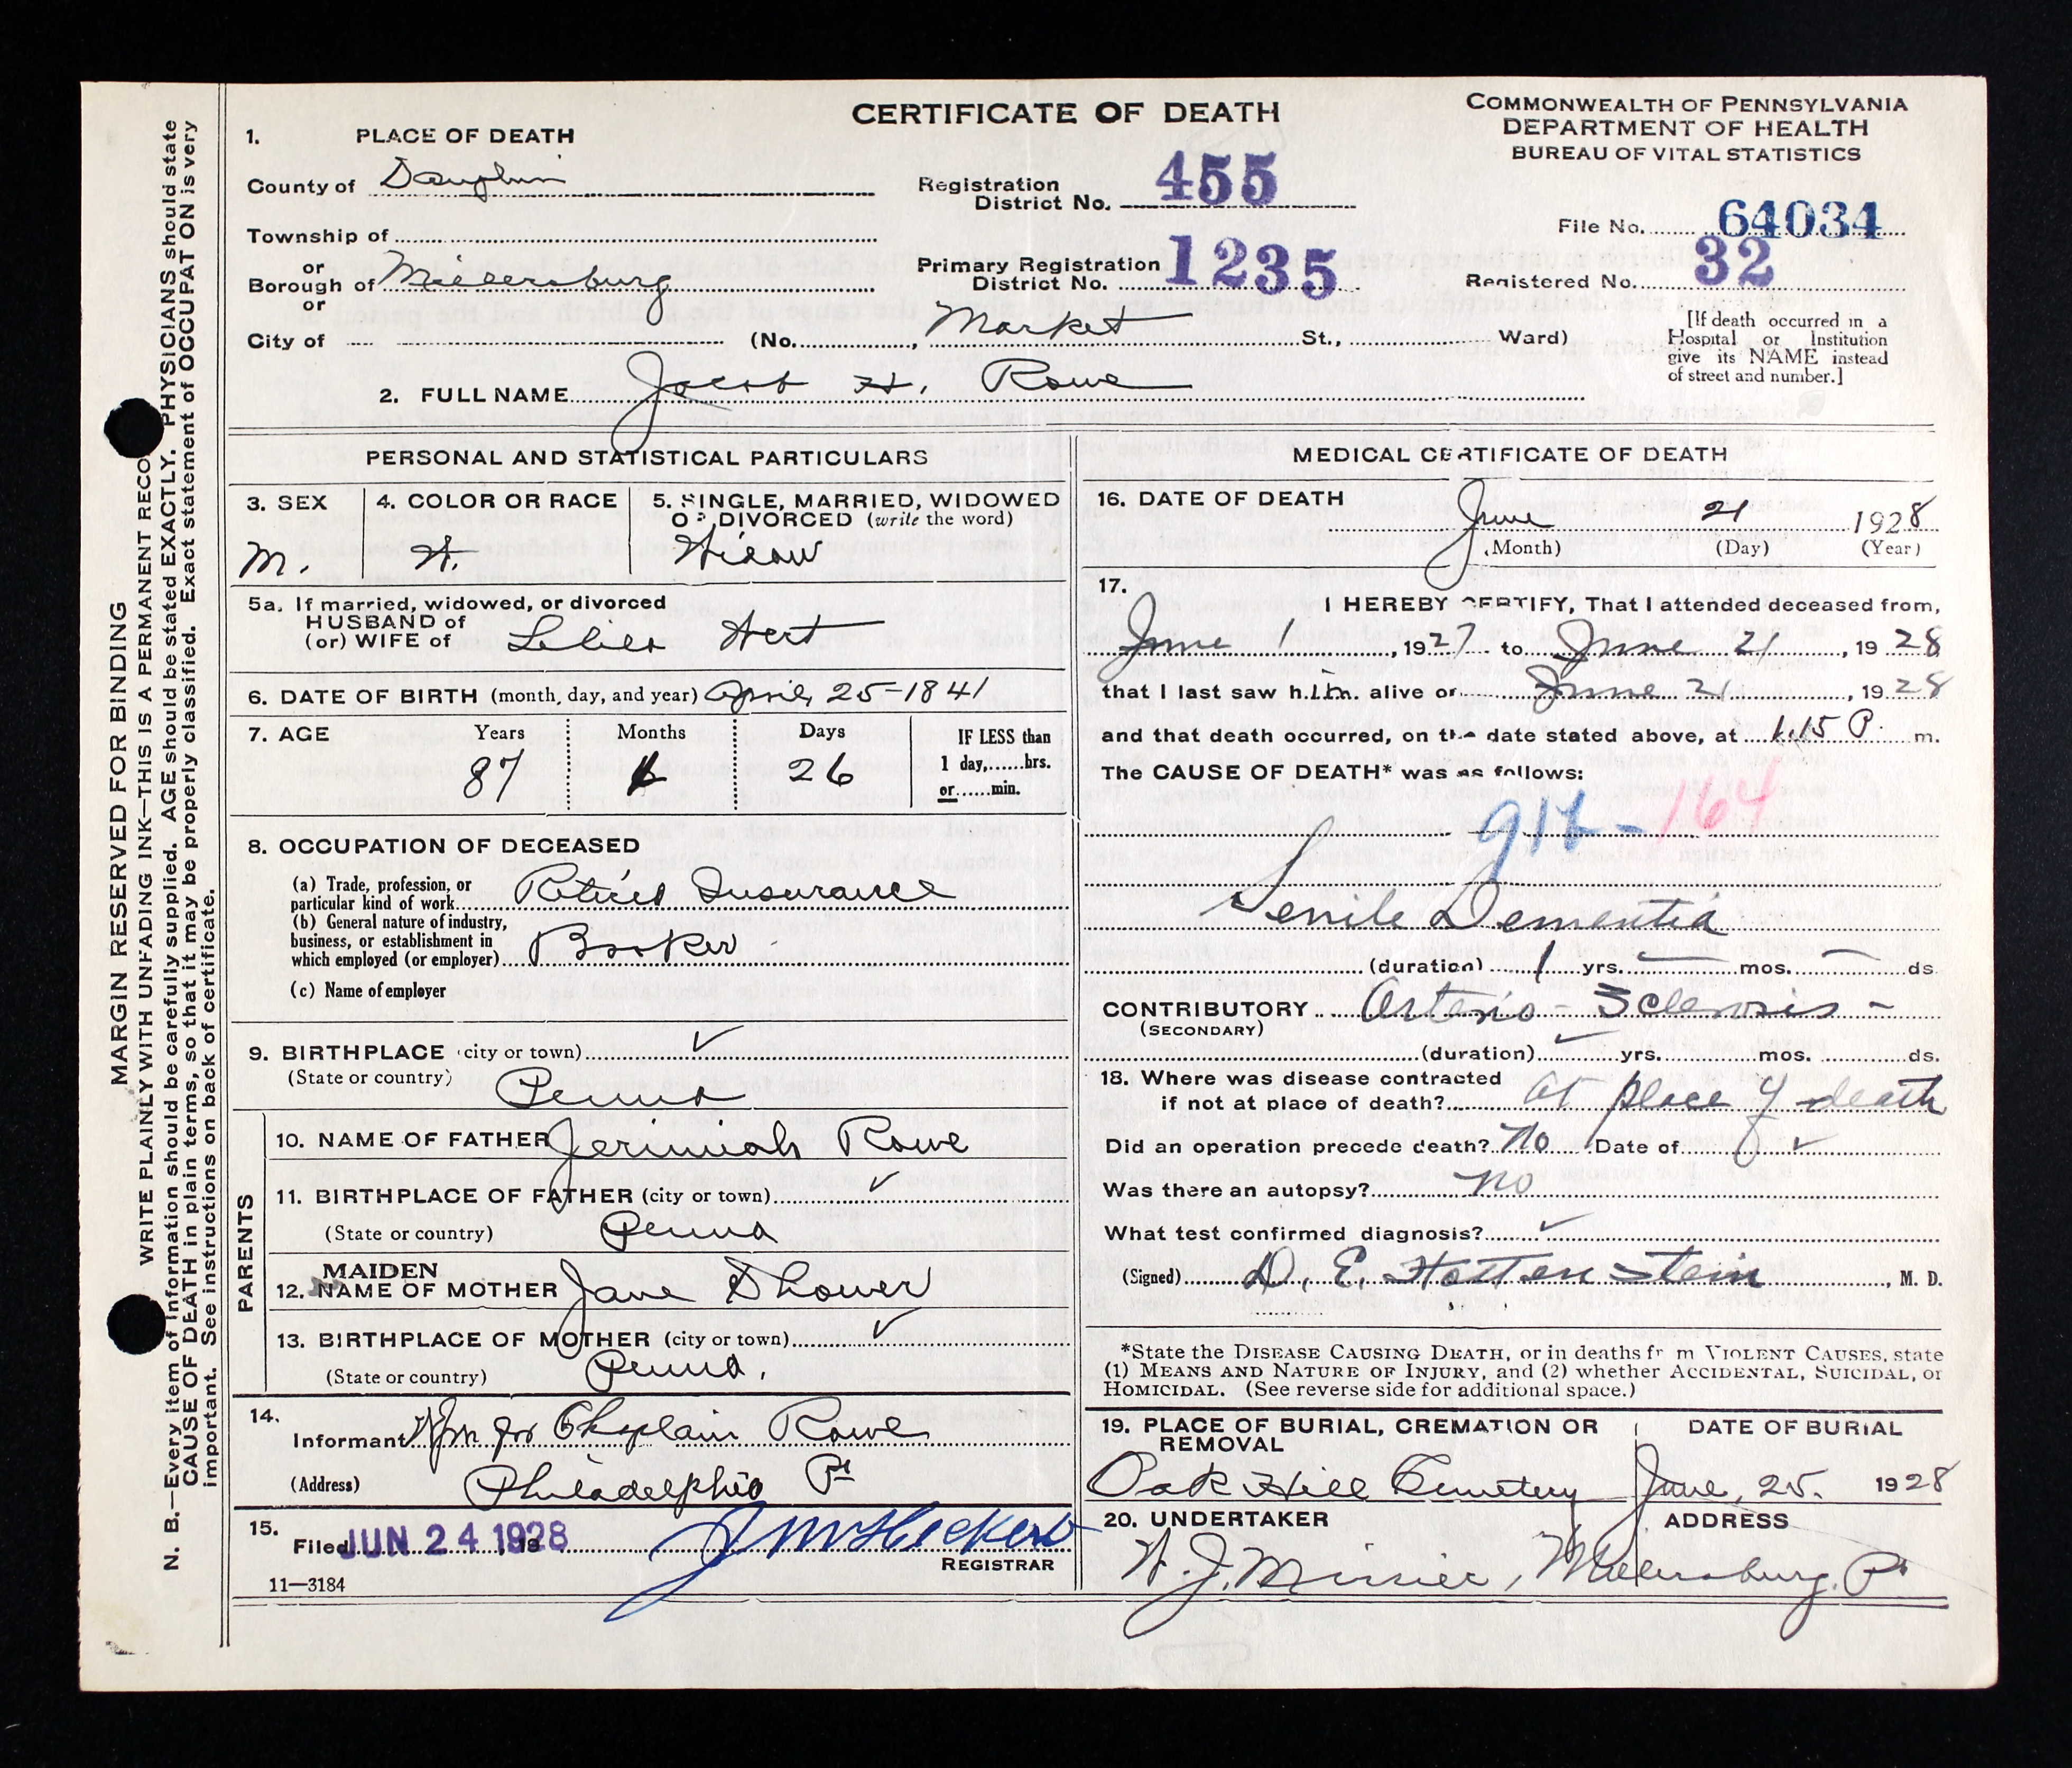 CERTIFICATE OF DEATH
COMMONWEALTH OF PENNSYLVANIA
DEPARTMENT OF HEALTH
BUREAU OF VITAL STATISTICS
1. PLACE OF DEATH
County of Dauphin
Registration District No. 455
File No. 64034
Township of
or
Borough of Millersburg
or
Primary Registration District No. 1235
Registered No. 32
City of (No. , Market St., Ward)
[If death occurred in a Hospital or Institution give its NAME instead of street and number.]
2. FULL NAME Jacob H. Rowe
PERSONAL AND STATISTICAL PARTICULARS
3. SEX
M.
4. COLOR OR RACE
W.
5. SINGLE, MARRIED, WIDOWED OR DIVORCED (write the word)
Widow
5a. If married, widowed, or divorced
HUSBAND of
(or) WIFE of Hert
6. DATE OF BIRTH (month, day, and year) April 25-1841
7. AGE Years Months Days IF LESS than
87 1 26 1 day,......hrs.
or......min.
8. OCCUPATION OF DECEASED
(a) Trade, profession, or particular kind of work Retired Insurance
(b) General nature of industry, business, or establishment in which employed (or employer) Broker
(c) Name of employer
9. BIRTHPLACE (city or town) ✓
(State or country) Penna
PARENTS
10. NAME OF FATHER Jerimiah Rowe
11. BIRTHPLACE OF FATHER (city or town) ✓
(State or country) Penna
12. MAIDEN NAME OF MOTHER Jane Shower
13. BIRTHPLACE OF MOTHER (city or town) ✓
(State or country) Penna.
14.
Informant Chaplain Rowe
(Address) Philadelphia Pa
15.
Filed JUN 24 1928, 19
REGISTRAR
11—3184
MEDICAL CERTIFICATE OF DEATH
16. DATE OF DEATH June 21 1928
(Month) (Day) (Year)
17.
I HEREBY CERTIFY, That I attended deceased from,
June 1, 1927 to June 21, 1928
that I last saw him alive on June 21, 1928
and that death occurred, on the date stated above, at 1.15 P. m.
The CAUSE OF DEATH* was as follows:
- 164
Senile Dementia
(duration) 1 yrs. — mos. — ds.
CONTRIBUTORY Arterio-Sclerosis -
(SECONDARY)
(duration) ✓ yrs. mos. ds.
18. Where was disease contracted
if not at place of death? at place of death
Did an operation precede death? No Date of ✓
Was there an autopsy? no
What test confirmed diagnosis? ✓
(Signed) D. E. Hottenstein, M. D.
*State the DISEASE CAUSING DEATH, or in deaths from VIOLENT CAUSES, state
(1) MEANS AND NATURE OF INJURY, and (2) whether ACCIDENTAL, SUICIDAL, or
HOMICIDAL. (See reverse side for additional space.)
19. PLACE OF BURIAL, CREMATION OR REMOVAL
DATE OF BURIAL
Oak Hill Cemetery June, 25. 1928
20. UNDERTAKER
ADDRESS
Millersburg. Pa
MARGIN RESERVED FOR BINDING
WRITE PLAINLY WITH UNFADING INK—THIS IS A PERMANENT RECO
N. B.—Every item of information should be carefully supplied. AGE should be stated EXACTLY. PHYSICIANS should state
CAUSE OF DEATH in plain terms, so that it may be properly classified. Exact statement of OCCUPATION is very
important. See instructions on back of certificate.